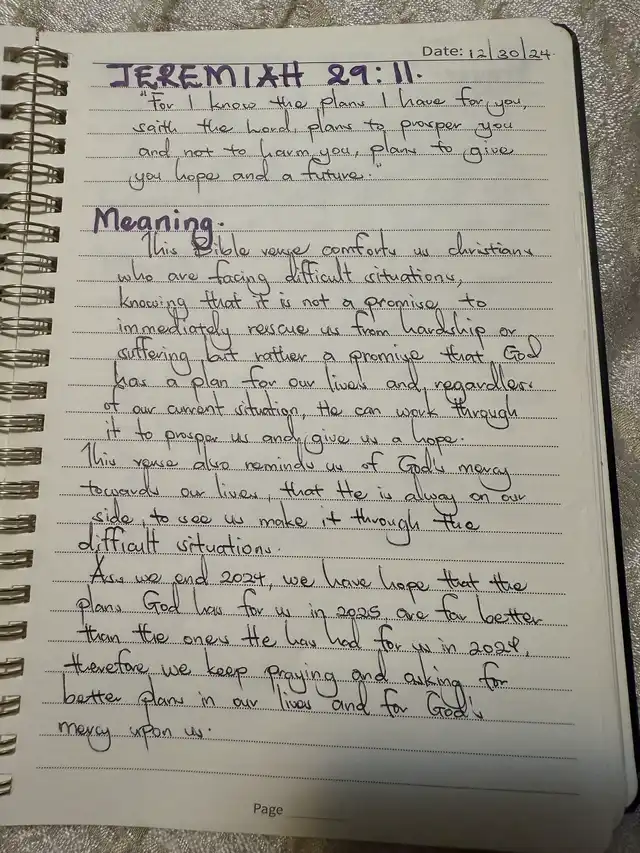 Date: 12/30/24
JEREMIAH 29:11.
"For I know the plans I have for you,
saith the Lord, plans to prosper you
and not to harm you, plans to give
you hope and a future."
Meaning.
This Bible verse comforts us christians
who are facing difficult situations,
knowing that it is not a promise to
immediately rescue us from hardship or
suffering but rather a promise that God
has a plan for our lives and, regardless
of our current situation, He can work through
it to prosper us and give us a hope.
This verse also reminds us of God's mercy
towards our lives, that He is alway on our
side, to see us make it through the
difficult situations.
As we end 2024, we have hope that the
plans God has for us in 2025 are far better
than the ones He has had for us in 2024,
therefore we keep praying and asking for
better plans in our lives and for God's
mercy upon us.
Page